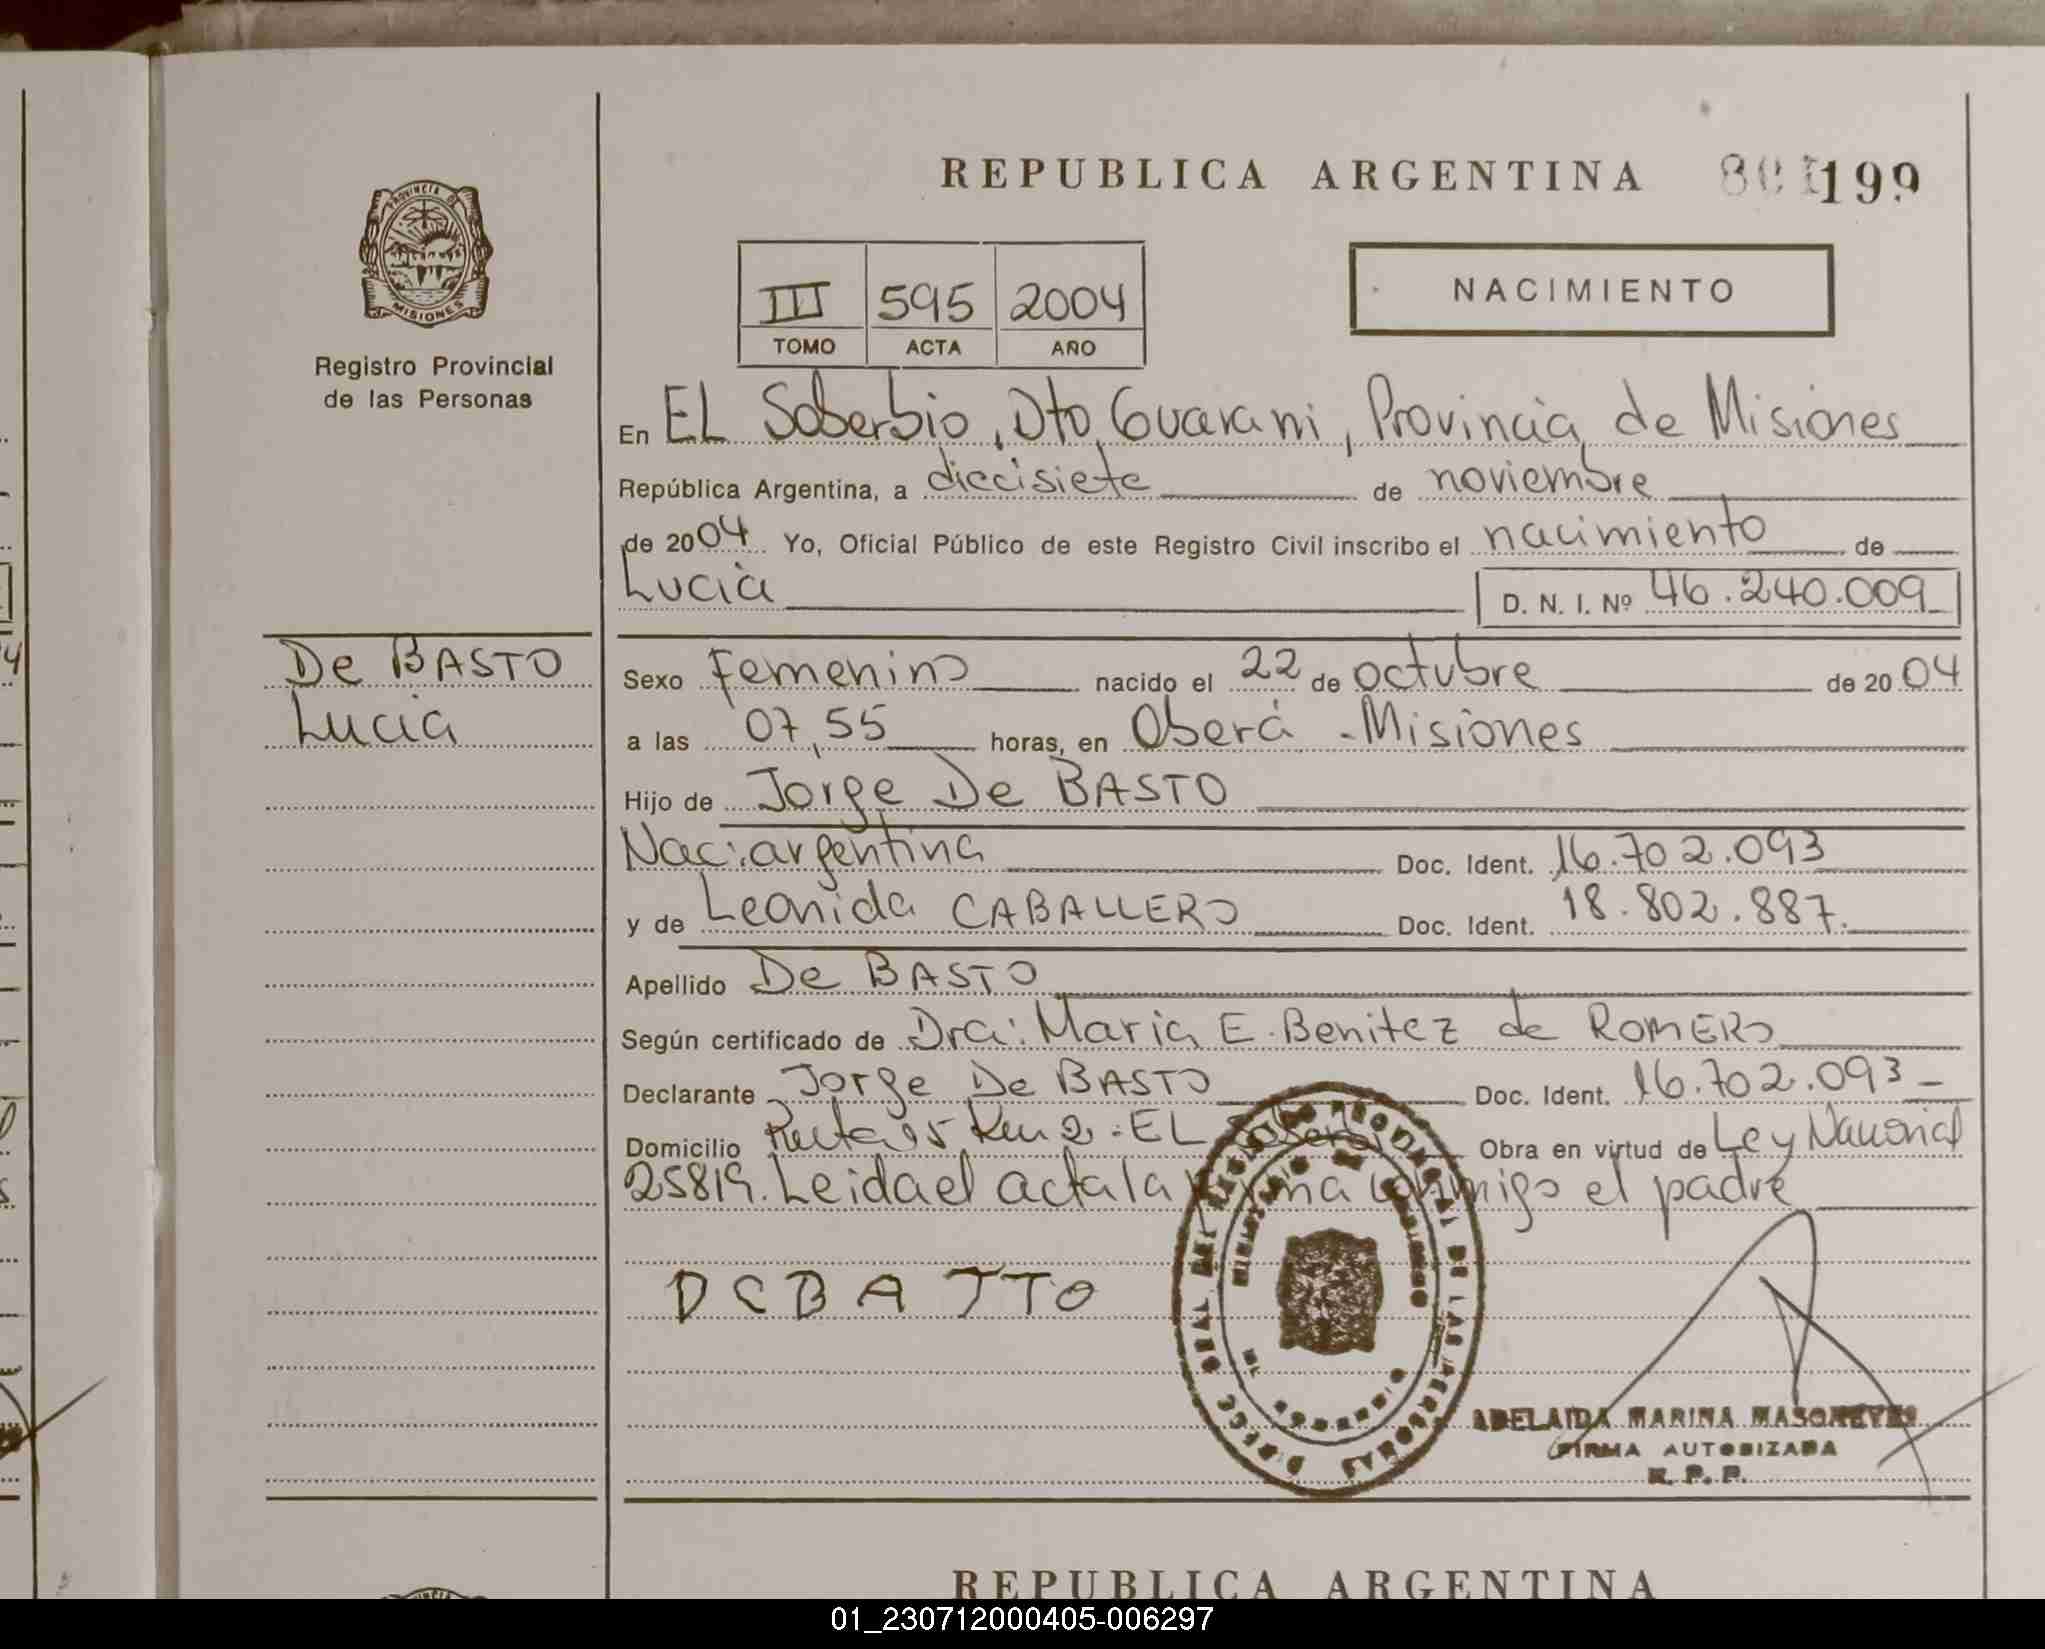 REPUBLICA ARGENTINA 199
PROVINCIA DE
MISIONES
Registro Provincial
de las Personas
III 595 2004
TOMO ACTA AÑO
NACIMIENTO
En EL Soberbio, Dto. Guarani, Provincia de Misiones
República Argentina, a diecisiete de noviembre
de 2004 Yo, Oficial Público de este Registro Civil inscribo el nacimiento de
Lucia D. N. I. Nº 46.240.009
De BASTO
Lucia
Sexo Femenino nacido el 22 de octubre de 2004
a las 07,55 horas, en Oberá - Misiones
Hijo de Jorge De BASTO
Nac: argentina Doc. Ident. 16.702.093
y de Leonida CABALLERO Doc. Ident. 18.802.887.
Apellido De BASTO
Según certificado de Dra: Maria E. Benitez de ROMERO
Declarante Jorge De BASTO Doc. Ident. 16.702.093
Domicilio Km 2 - EL Obra en virtud de Ley Nacional
25819. Leida el acta la conmigo el padre
DCBA JTO
REGISTRO PROVINCIAL DE LAS PERSONAS
ADELAIDA MARINA
FIRMA AUTORIZADA
R. P. P.
REPUBLICA ARGENTINA
01_230712000405-006297